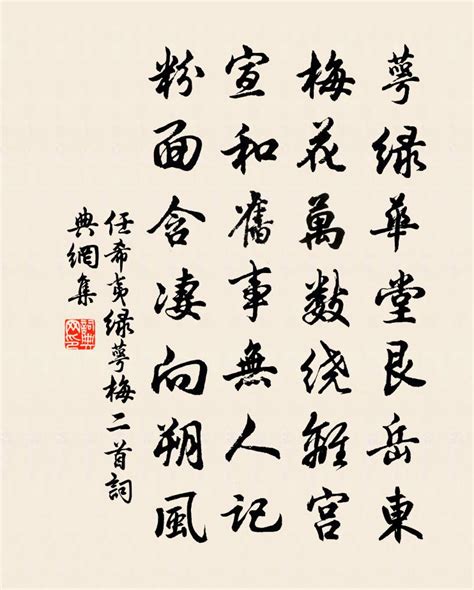 萼绿华堂艮岳東
梅花萬數绕離宮
宣和舊事無人记
粉面含凄向朔風
任希夷绿萼梅二首詞
典網集
詞典网印